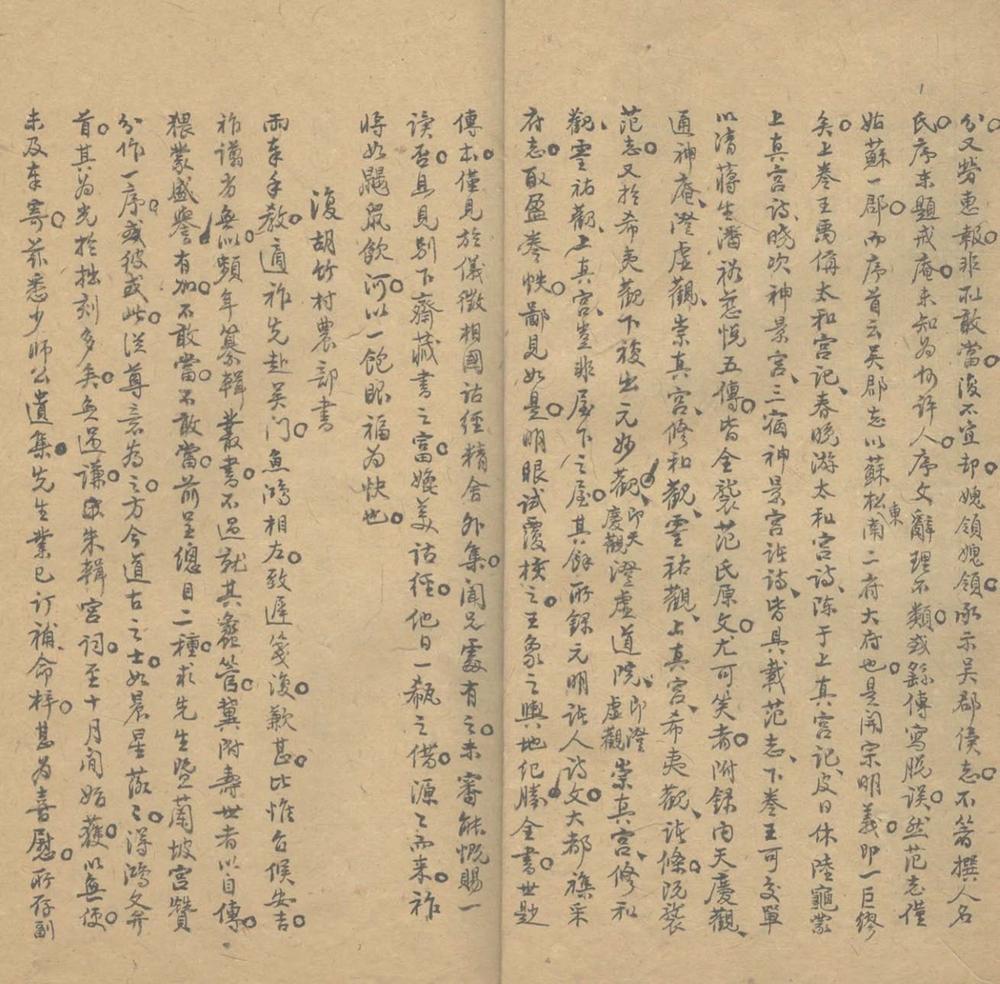 分又勞惠報非所敢當復不宜却媿領媿領承示吳郡僎志不著撰人名
氏序末題戒庵未知為何許人序文辭理不類或繇傳寫脫誤然范志僅
姑蘇一郡而序首云吳郡志以蘇松東南二府大府也是開宗明義即一巨繆
矣上卷王禹偁太和宮記春晚游太和宮詩陳于上真宮記皮日休陸龜蒙
上真宮詩曉次神景宮三宿神景宮詠詩皆具載范志下卷王可交單
以清蔣生潘裕慈悅五傳皆全襲范氏原文尤可笑者附錄內天慶觀
通神庵澄虛觀崇真宮修和觀靈祐觀上真宮希夷觀諸條既襲
范志又於希夷觀下複出元妙觀即天慶觀澄虛道院即澄虛觀崇真宮修和
觀靈祐觀上真宮豈非屋下之屋其餘所錄元明諸人詩文大都襍采
府志取盈卷帙鄙見如是明眼試覆按之王象之輿地紀勝全書世尠
傳本僅見於儀徵相國詁經精舍外集聞兄處有之未審能慨賜一
讀否且見別下齋藏書之富媲美詁經他日一瓻之借源源而來祚
將如鼴鼠飲河以一飽眼福為快也
復胡竹村農部書
兩奉手教適祚先赴吳門魚鴻相左致遲箋復歉甚比惟台候安吉
祚譾劣無似頻年纂輯叢書不過就其蠡管冀附壽世者以自傳
猥蒙盛譽有加不敢當不敢當前呈總目二種求先生暨蘭坡宮贊
分作一序或彼或此從尊意為之方今道古之士如晨星落落得鴻文弁
首其為光於拙刻多矣無過謙或朱輯宮詞至十月間始獲以無便
未及奉寄茲悉少師公遺集先生業已訂補命梓甚為喜慰所存副